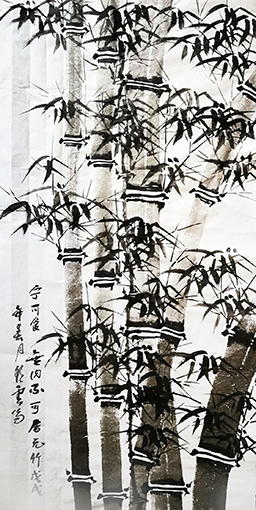 宁可食無肉不可居无竹戊戌
年春月雲写